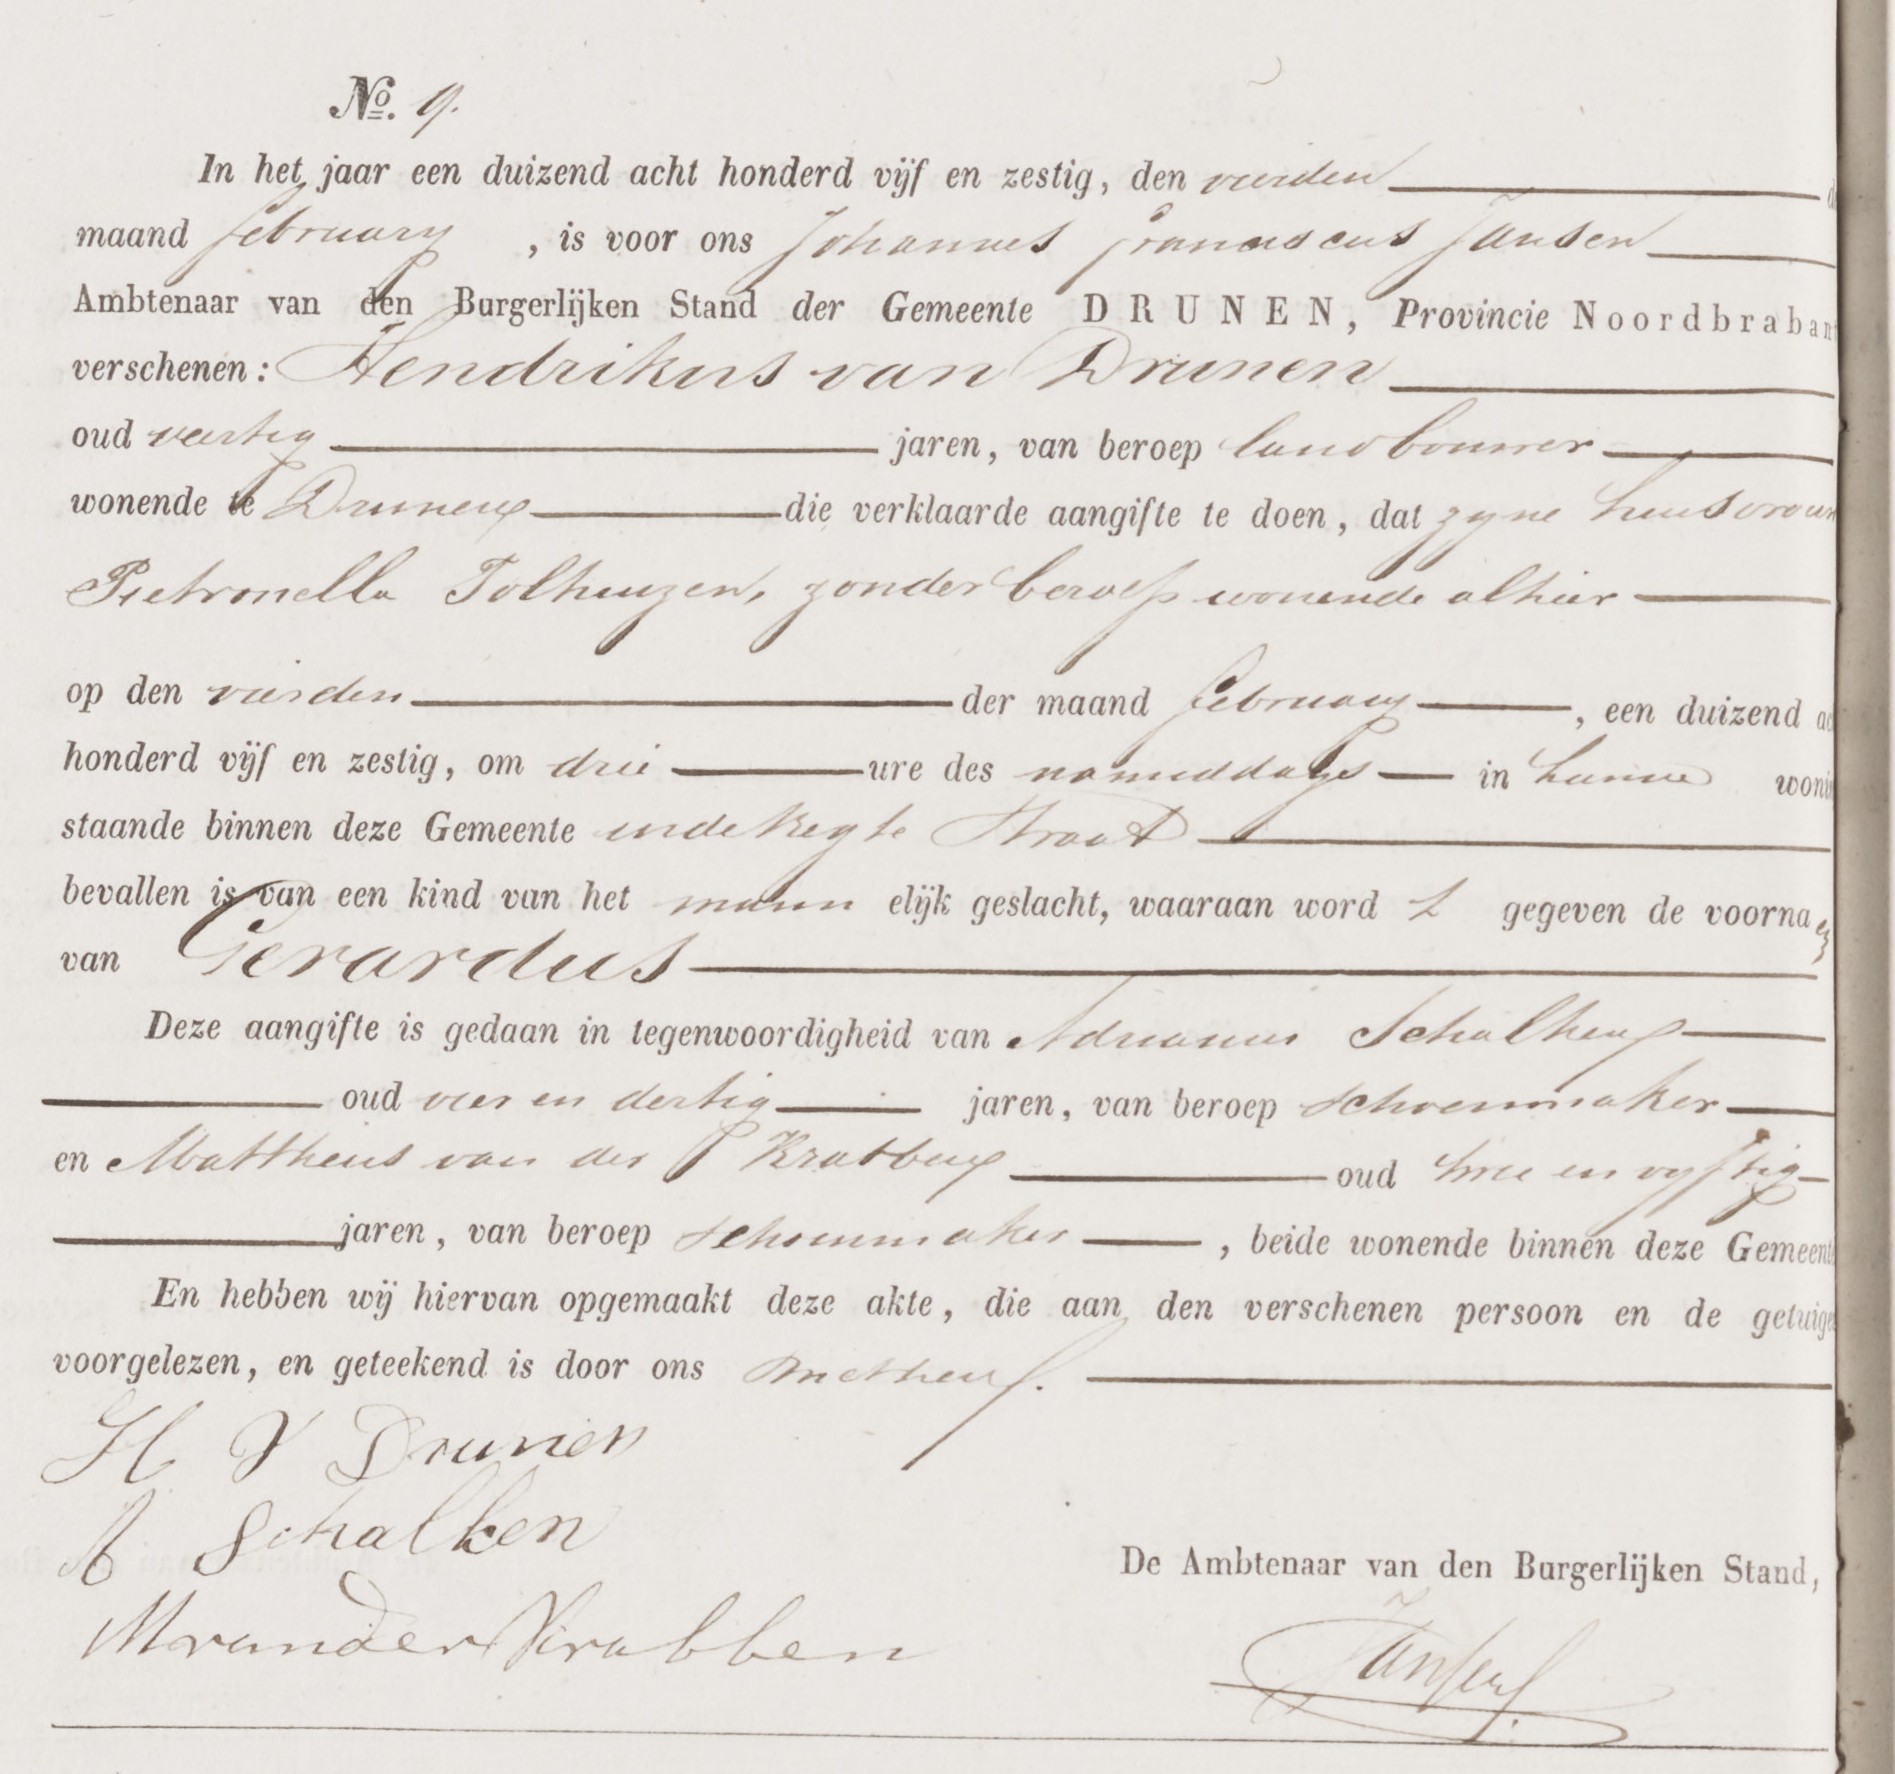 No. 9.
In het jaar een duizend acht honderd vijf en zestig, den vierden
maand february , is voor ons Johannes Franciscus Jansen
Ambtenaar van den Burgerlijken Stand der Gemeente DRUNEN, Provincie Noordbrabant
verschenen: Hendrikus van Drunen
oud veertig jaren, van beroep landbouwer
wonende te Drunen die verklaarde aangifte te doen, dat zyne huisvrouw
Pietronella Tolhuyzen, zonder beroep wonende alhier
op den vierden der maand february , een duizend ac
honderd vijf en zestig, om drie ure des namiddags in hunne wonin
staande binnen deze Gemeente in de Regte Straat
bevallen is van een kind van het mann elijk geslacht, waaraan word t gegeven de voorna en
van Gerardus
Deze aangifte is gedaan in tegenwoordigheid van Adrianus Schalken
oud vier en dertig jaren, van beroep schoenmaker
en Mattheus van der Krabben oud twee en vyftig
jaren, van beroep schoenmaker , beide wonende binnen deze Gemeente
En hebben wij hiervan opgemaakt deze akte, die aan den verschenen persoon en de getuige
voorgelezen, en geteekend is door ons met hen.
H V Drunen
A Schalken
M van der Krabben
De Ambtenaar van den Burgerlijken Stand,
Jansen